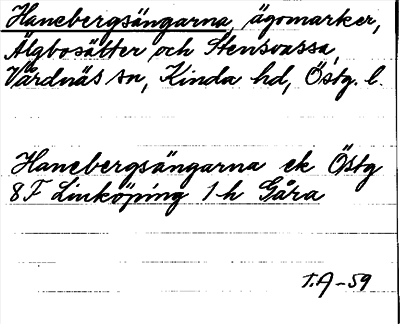 Hanebergsängarna, ägomarker,
Älgbosätter och Stensvassa,
Vårdnäs sn, Kinda hd, Östg. l.
Hanebergsängarna ek Östg
8F Linköping 1h Gåra
T.A-59